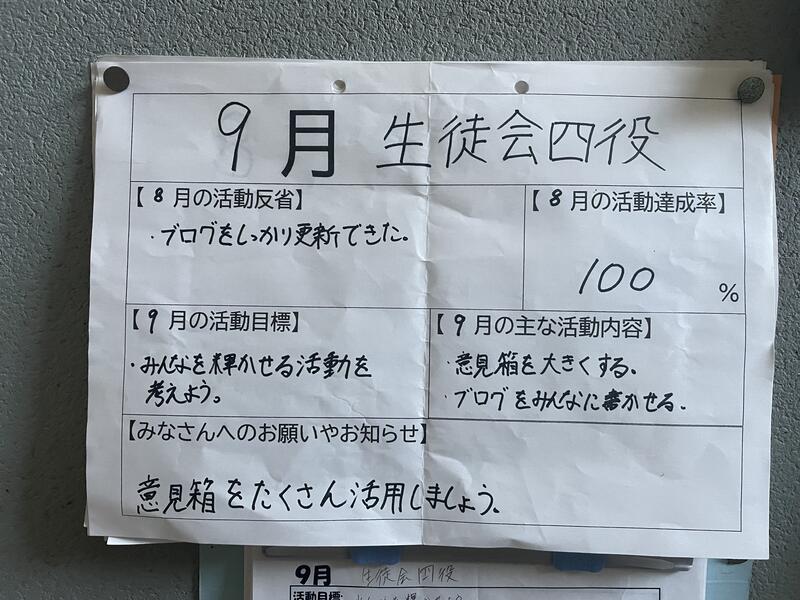 9月 生徒会四役
【8月の活動反省】
・ブログをしっかり更新できた。
【8月の活動達成率】
100
%
【9月の活動目標】
・みんなを輝かせる活動を
考えよう。
【9月の主な活動内容】
・意見箱を大きくする。
・ブログをみんなに書かせる。
【みなさんへのお願いやお知らせ】
意見箱をたくさん活用しましょう。
9月 生徒会四役
活動目標: